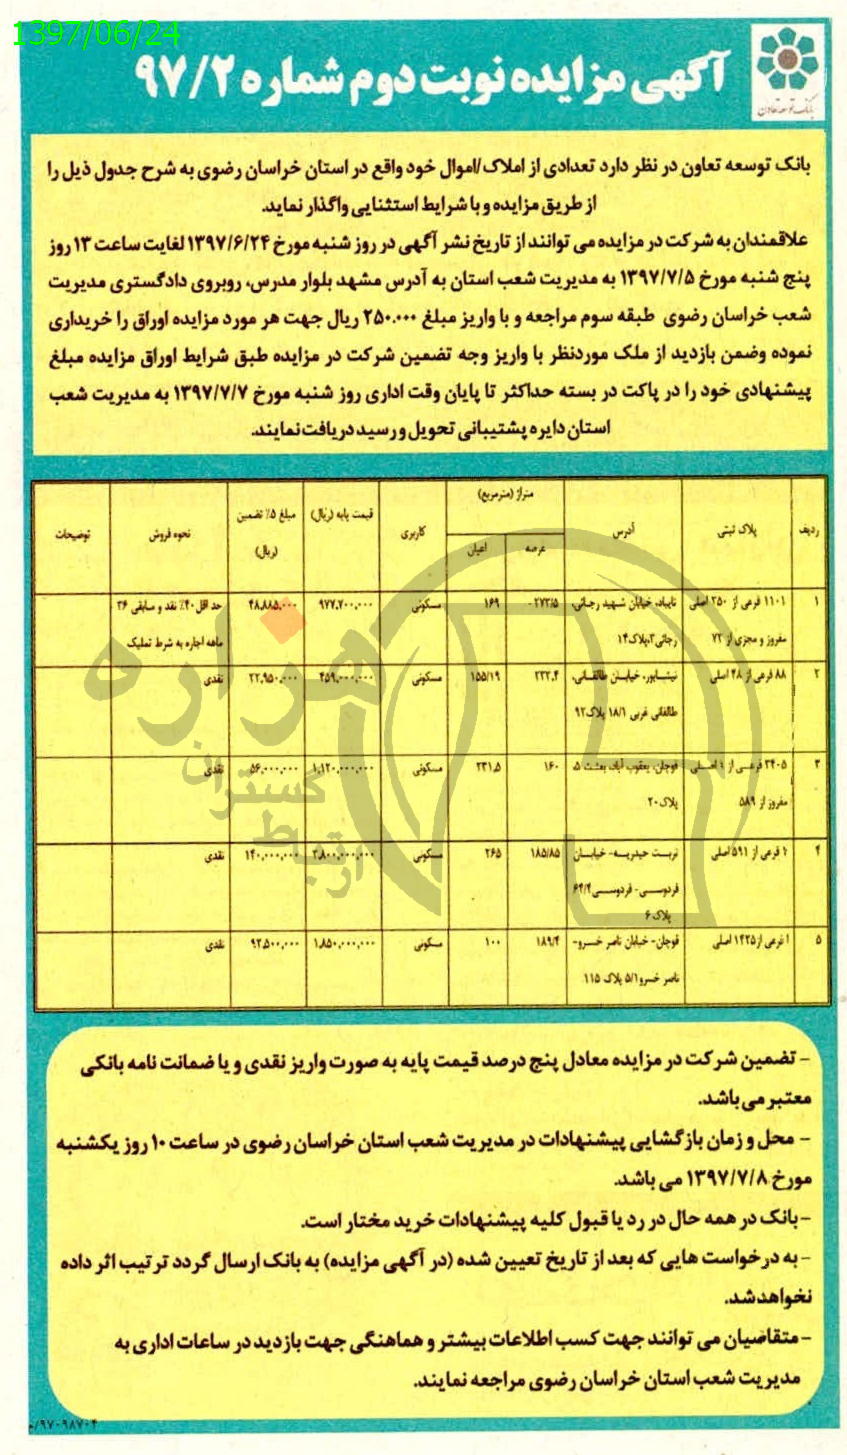 1397/06/24
آگهی مزایده نوبت دوم شماره ۹۷/۲
بانک توسعه تعاون
بانک توسعه تعاون در نظر دارد تعدادی از املاک/اموال خود واقع در استان خراسان رضوی به شرح جدول ذیل را
از طریق مزایده و با شرایط استثنایی واگذار نماید.
علاقمندان به شرکت در مزایده می توانند از تاریخ نشر آگهی در روز شنبه مورخ ۱۳۹۷/۶/۲۴ لغایت ساعت ۱۳ روز
پنج شنبه مورخ ۱۳۹۷/۷/۵ به مدیریت شعب استان به آدرس مشهد بلوار مدرس، روبروی دادگستری مدیریت
شعب خراسان رضوی طبقه سوم مراجعه و با واریز مبلغ ۲۵۰.۰۰۰ ریال جهت هر مورد مزایده اوراق را خریداری
نموده وضمن بازدید از ملک موردنظر با واریز وجه تضمین شرکت در مزایده طبق شرایط اوراق مزایده مبلغ
پیشنهادی خود را در پاکت در بسته حداکثر تا پایان وقت اداری روز شنبه مورخ ۱۳۹۷/۷/۷ به مدیریت شعب
استان دایره پشتیبانی تحویل و رسید دریافت نمایند.
متراژ (مترمربع)
ردیف پلاک ثبتی آدرس عرصه اعیان کاربری قیمت پایه (ریال) مبلغ ۵٪ تضمین نحوه فروش توضیحات
(ریال)
۱ ۱۱۰۱ فرعی از ۲۵۰ اصلی تایباد، خیابان شهید رجائی، ۲۷۳/۵۰ ۱۶۹ مسکونی ۹۷۷,۷۰۰,۰۰۰ ۴۸,۸۸۵,۰۰۰ حد اقل ۴۰٪ نقد و مابقی ۳۶
مفروز و مجزی از ۷۲ رجائی۳،پلاک۱۴ ماهه اجاره به شرط تملیک
۲ ۸۸ فرعی از ۴۸ اصلی نیشابور، خیابان طالقانی، ۲۲۲.۴ ۱۵۵/۱۹ مسکونی ۴۵۹,۰۰۰,۰۰۰ ۲۲,۹۵۰,۰۰۰ نقدی
طالقانی غربی ۱۸/۱ پلاک۹۲
۳ ۳۴۰۵ فرعی از ۱ اصلی قوچان، یعقوب آباد، بعثت ۵، ۱۶۰ ۲۳۱.۵ مسکونی ۱,۱۲۰,۰۰۰,۰۰۰ ۵۶,۰۰۰,۰۰۰ نقدی
مفروز از ۵۸۹ پلاک۲۰
۴ ۱ فرعی از ۵۹۱ اصلی تربت حیدریه- خیابان ۱۸۵/۸۵ ۲۶۵ مسکونی ۲,۸۰۰,۰۰۰,۰۰۰ ۱۴۰,۰۰۰,۰۰۰ نقدی
فردوسی- فردوسی۶۴/۴
پلاک۶
۵ ۱ فرعی از۱۴۲۵ اصلی قوچان- خیابان ناصر خسرو- ۱۸۹/۴ ۱۰۰ مسکونی ۱,۸۵۰,۰۰۰,۰۰۰ ۹۲,۵۰۰,۰۰۰ نقدی
ناصر خسرو۵/۱ پلاک ۱۱۵
هزاره
گستران
ارتباط
- تضمین شرکت در مزایده معادل پنج درصد قیمت پایه به صورت واریز نقدی و یا ضمانت نامه بانکی
معتبر می باشد.
- محل و زمان بازگشایی پیشنهادات در مدیریت شعب استان خراسان رضوی در ساعت ۱۰ روز یکشنبه
مورخ ۱۳۹۷/۷/۸ می باشد.
-بانک در همه حال در رد یا قبول کلیه پیشنهادات خرید مختار است.
- به درخواست هایی که بعد از تاریخ تعیین شده (در آگهی مزایده) به بانک ارسال گردد ترتیب اثر داده
نخواهدشد.
-متقاضیان می توانند جهت کسب اطلاعات بیشتر و هماهنگی جهت بازدید در ساعات اداری به
مدیریت شعب استان خراسان رضوی مراجعه نمایند.
/۹۷۰۹۸۷۰۴